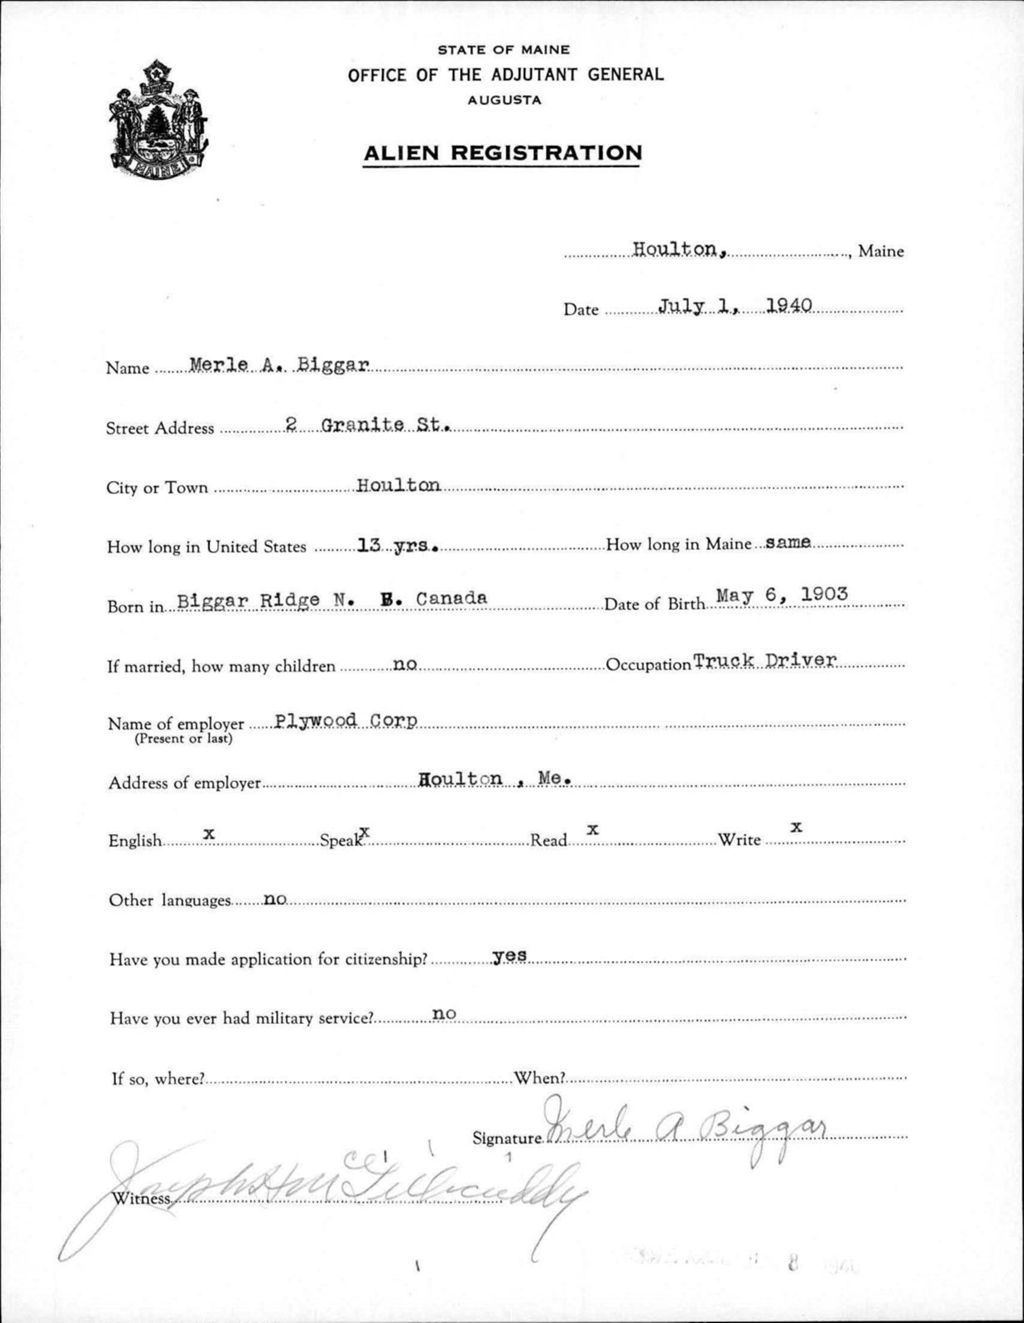 STATE OF MAINE
OFFICE OF THE ADJUTANT GENERAL
AUGUSTA
ALIEN REGISTRATION
MAINE
Houlton, , Maine
Date July 1, 1940
Name Merle A. Biggar
Street Address 2 Granite St.
City or Town Houlton
How long in United States 13 yrs. How long in Maine same
Born in Biggar Ridge N. B. Canada Date of Birth May 6, 1903
If married, how many children no Occupation Truck Driver
Name of employer Plywood Corp
(Present or last)
Address of employer Houlton , Me.
English x Speak x Read x Write x
Other languages no
Have you made application for citizenship? yes
Have you ever had military service? no
If so, where? When?
Signature Merle A Biggar
Witness Joseph H